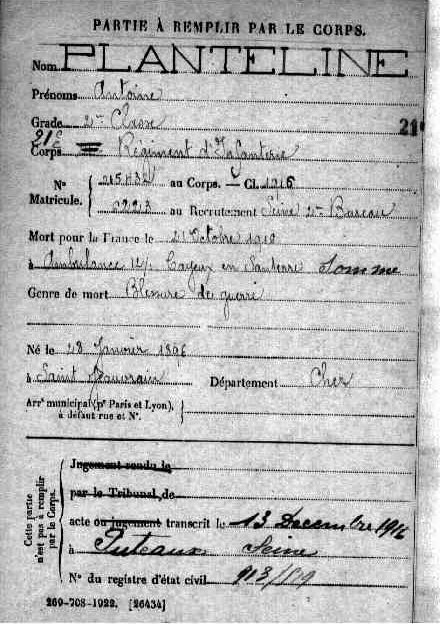 PARTIE À REMPLIR PAR LE CORPS.
Nom PLANTELINE
Prénoms Antoine
Grade 2me Classe
21
21e
Corps Régiment d'Infanterie
N° au Corps. — Cl. 1916
Matricule. 6223 au Recrutement Seine 2me Bureau
Mort pour la France le 21 Octobre 1916
à Ambulance Cayeux en Santerre Somme
Genre de mort Blessure de guerre
Né le 28 Janvier 1896
à Saint Département Cher
Arrt municipal (pr Paris et Lyon),
à défaut rue et N°.
Cette partie
n'est pas à remplir
par le Corps.
Jugement rendu le
par le Tribunal de
acte ou jugement transcrit le 13 Decembre 1916
à Puteaux Seine
N° du registre d'état civil 913/
269-708-1922. [26434]